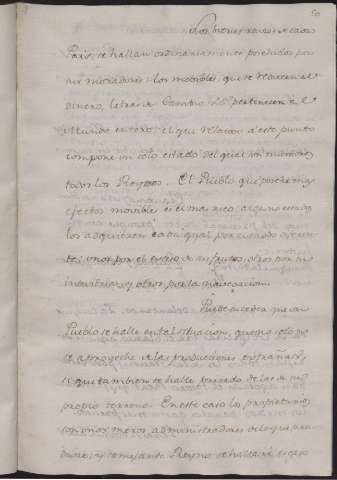 Los bienes raices de cada
Pais, se hallan ordinariamente poseidos por
sus moradores: los mobibles, que se reducen al
dinero, letras de Cambio &c. pertenecen à el
Mundo entero; el que relacion à este punto
compone un solo estado del qual son miembros,
todos los Reynos. El Pueblo que posehe mas
efectos mobibles es el mas rico. Algunos estados
los adquieren cada qual por
te: unos por el de sus frutos, otros por su
industria, y otros por la navegacion.
Puede suceder que un
Pueblo se halle en tal situacion, que no solo no
se aproveche de las producciones estrañas,
si que tambien se halle privado de las de su
propio terreno. En este caso los propietarios
son unos meros administradores de lo que
y semejante Reyno se hallará